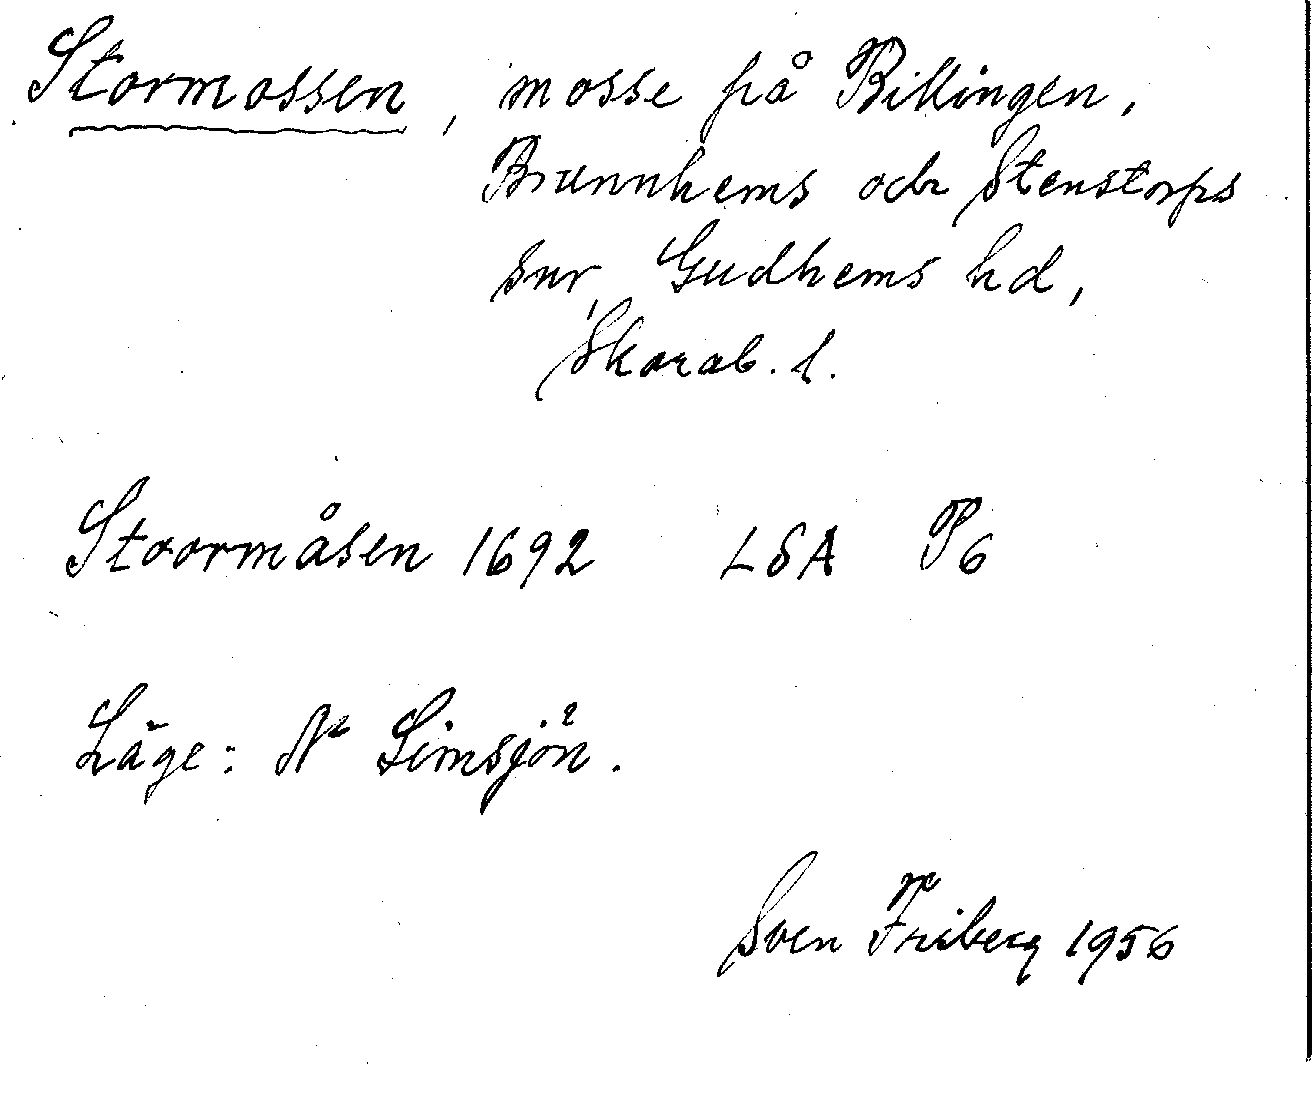 Stormossen, mosse på Billingen,
Brunnhems och Stenstorps
snr, Gudhems hd,
Skarab. l.
Stoormåsen 1692 LSA P6
Läge: N Simsjön.
Sven Friberg 1956